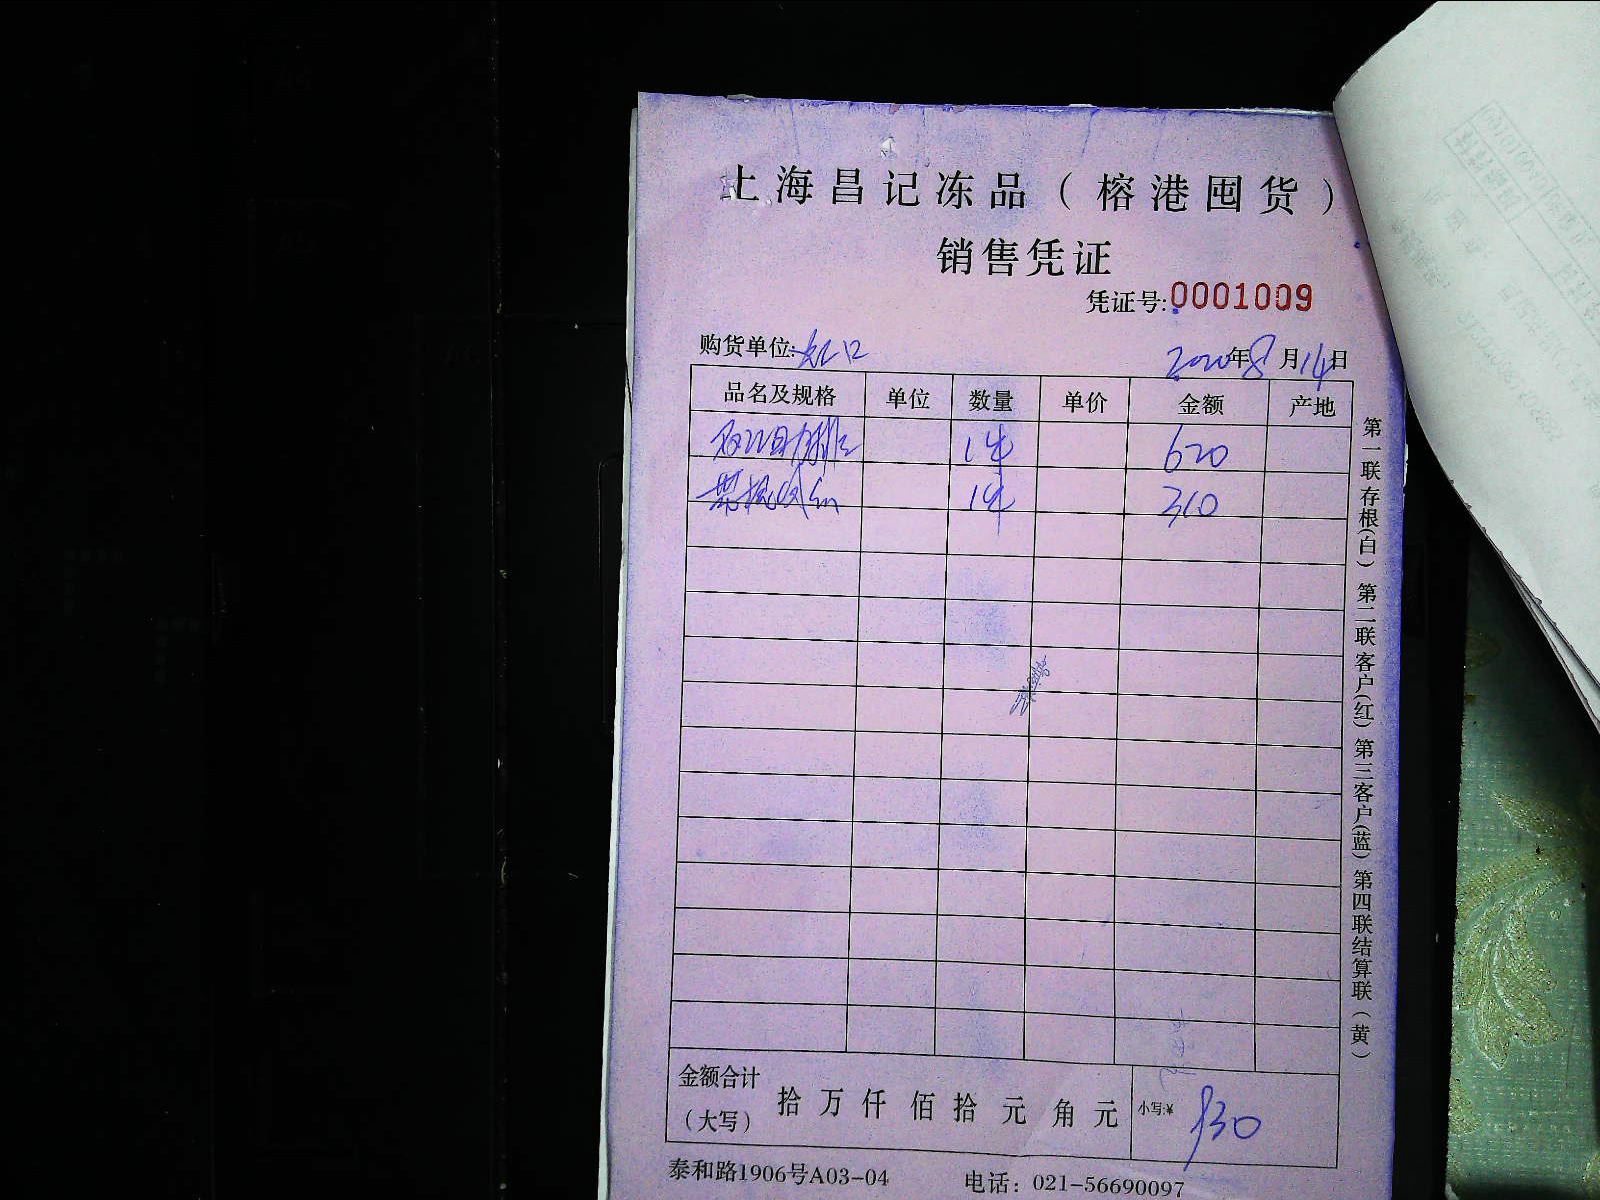 上海昌记冻品（榕港囤货）
销售凭证
凭证号:0001009
购货单位:虹口
2020年8月14日
品名及规格 单位 数量 单价 金额 产地
1件 620
1件 310
第一联存根(白) 第二联客户(红) 第三客户(蓝) 第四联结算联(黄)
金额合计
（大写） 拾 万 仟 佰 拾 元 角 元 小写:¥ 930
泰和路1906号A03-04 电话：021-56690097